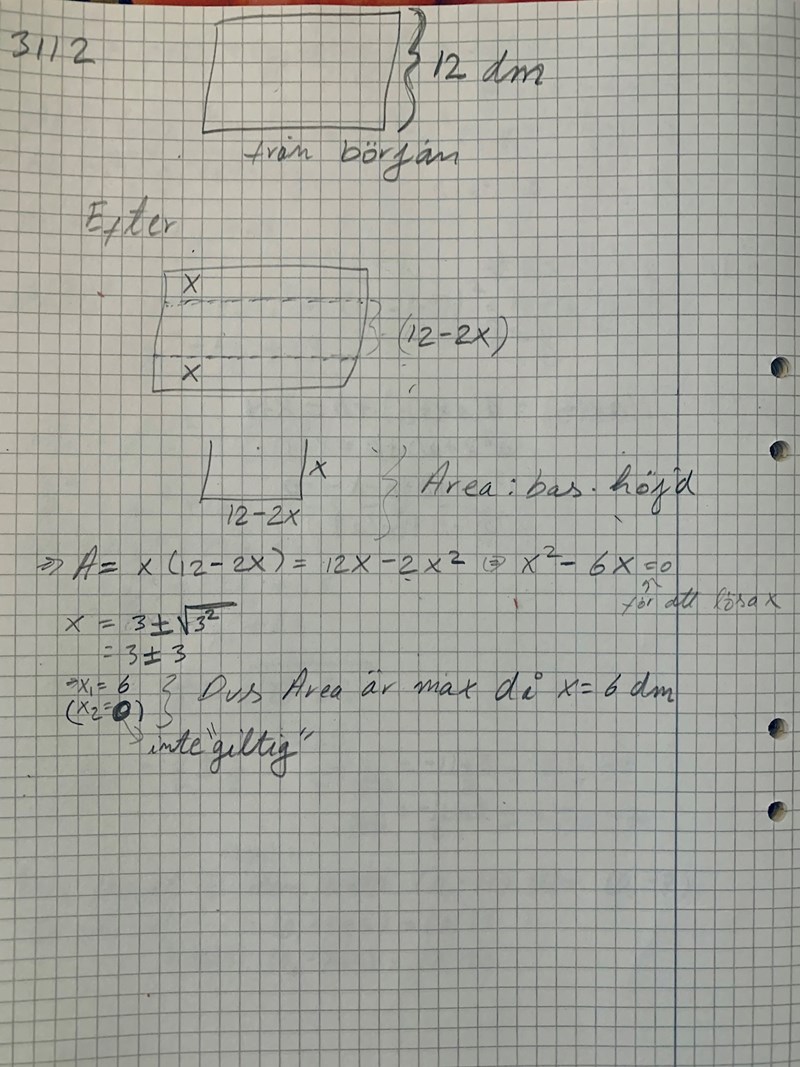 3112
12 dm
från början
Efter
x
(12-2x)
x
x
12-2x
Area: bas · höjd
⇒ A = x(12-2x) = 12x - 2x² ⇒ x² - 6x = 0
för att lösa x
x = 3 ± √3²
= 3 ± 3
⇒ x₁ = 6
(x₂ = 0)
Dvs Area är max då x = 6 dm
→ inte "giltig"